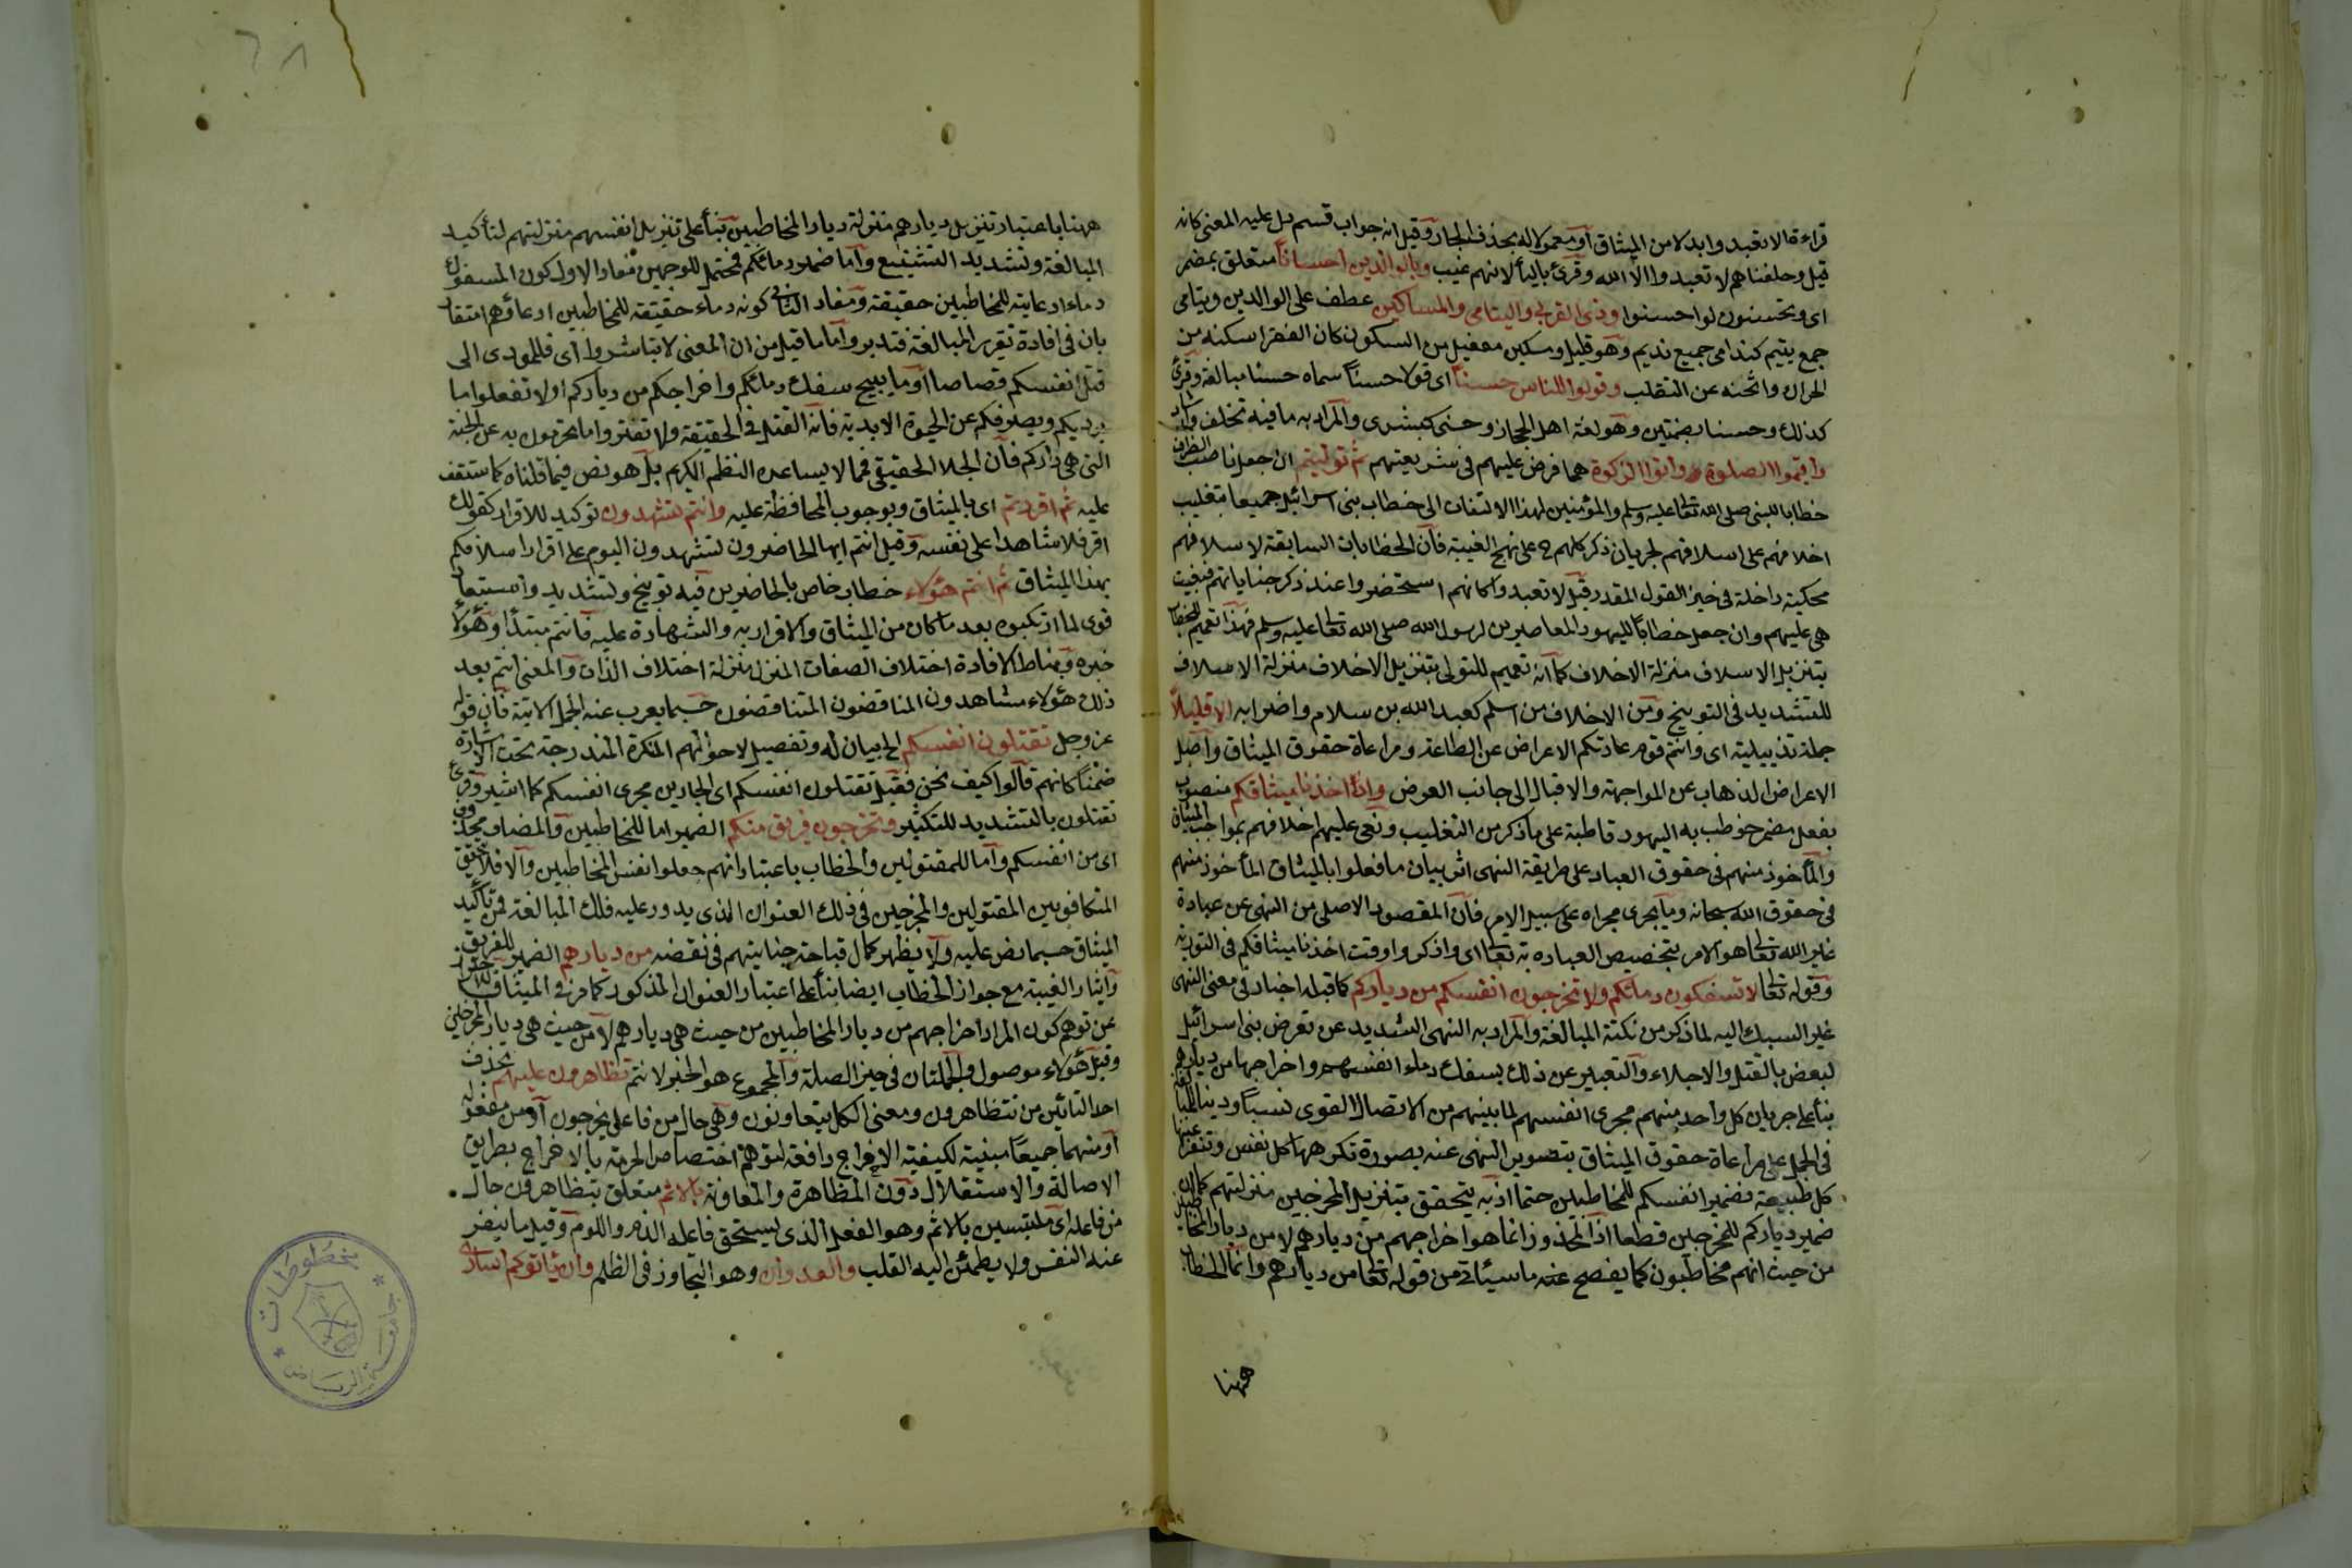 قراءة ان لا تعبدوا بدلا من الميثاق او معمولا له بحذف الجار وقيل انه جواب قسم دل عليه المعنى كانه
قيل وحلفناهم لا تعبدوا الا الله وقرئ بالياء لانهم غيب وبالوالدين احسانا متعلق بمضمر
اى وتحسنون او احسنوا وذى القربى واليتامى والمساكين عطف على الوالدين ويتامى
جمع يتيم كندامى جمع نديم وهو قليل ومسكين مفعيل من السكون كان الفقر اسكنه من
الحراك واثخنه عن التقلب وقولوا للناس حسنا اى قولا حسنا سماه حسنا مبالغة وقرئ
كذلك وحسنا بضمتين وهو لغة اهل الحجاز وحسنى كبشرى والمراد به ما فيه تخلق وارشاد
واقيموا الصلوة واتوا الزكوة هما فرض عليهم فى شريعتهم ثم توليتم ان جعل ناصب الظرف
خطابا للنبى صلى الله تعالى عليه وسلم والمؤمنين لهذا التفات الى خطاب بنى اسرائيل جميعا بتغليب
اخلافهم على اسلافهم لجريان ذكر كلهم ح على نهج الغيبة فان الخطابات السابقة لاسلافهم
محكية داخلة فى حيز القول المقدر قبل لا تعبدوا كانهم استحضروا عند ذكر جناياتهم فنعيت
هى عليهم وان جعل خطابا لليهود المعاصرين لرسول الله صلى الله تعالى عليه وسلم فهذا تعميم للخطاب
بتنزيل الاسلاف منزلة الاخلاف كما انه تعميم للتولى بتنزيل الاخلاف منزلة الاسلاف
للتشديد فى التوبيخ ومن الاخلاف من اسلم كعبد الله بن سلام واضرابه الا قليلا
جملة تذييلية اى وانتم قوم عادتكم الاعراض عن الطاعة ومراعاة حقوق الميثاق واصل
الاعراض الذهاب عن المواجهة والاقبال الى جانب العرض واذ اخذنا ميثاقكم منصوب
بفعل مضمر خوطب به اليهود قاطبة على ما ذكر من التغليب ونعى عليهم اخلافهم بمواجب الميثاق
والمأخوذ منهم فى حقوق العباد على طريقة النهى اثر بيان ما فعلوا بالميثاق المأخوذ منهم
فى حقوق الله سبحانه وما يجرى مجراه على سبيل الامر فان المقصود الاصلى من النهى عن عبادة
غير الله تعالى هو الامر بتخصيص العبادة به تعالى اى واذكروا وقت اخذنا ميثاقكم فى التورية
وقوله تعالى لا تسفكون دمائكم ولا تخرجون انفسكم من دياركم كما قبله اخبار فى معنى النهى
غير السبك اليه لما ذكر من نكتة المبالغة والمراد به النهى الشديد عن تعرض بنى اسرائيل
لبعض بالقتل والاجلاء والتعبير عن ذلك بسفك دماء انفسهم واخراجها من ديارهم
بناء على جريان كل واحد منهم مجرى انفسهم لما بينهم من الاتصال القوى نسبا ودينا للمبالغة
فى الحمل على مراعاة حقوق الميثاق بتصوير المنهى عنه بصورة تكرهها كل نفس وتنفر عنها
كل طبيعة فضمير انفسكم للمخاطبين حتما اذ به يتحقق بتنزيل المخرجين منزلتهم كما ان
ضمير دياركم للمخرجين قطعا اذ المحذور انما هو اخراجهم من ديارهم لا من ديار المخاطبين
من حيث انهم مخاطبون كما يفصح عنه ما سيئاتى من قوله تعالى من ديارهم وانما الخطاب
ههنا
ههنا باعتبار تنزيل ديارهم منزلة ديار المخاطبين بناء على تنزيل انفسهم منزلتهم لتأكيد
المبالغة وتشديد التشنيع واما ضمير دمائكم فمحتمل للوجهين مفاد الاول كون المسفوك
دماء ادعاية للمخاطبين حقيقة ومفاد الثانى كونه دماء حقيقة للمخاطبين ادعاؤهما متقار
بان فى افادة تقرير المبالغة فتدبر واما ما قيل من ان المعنى لا تباشروا اى فللمودى الى
قتل انفسكم قصاصا او ما يبيح سفك دمائكم واخراجكم من دياركم او لا تفعلوا ما
يرديكم ويصرفكم عن الحيوة الابدية فانه القتل فى الحقيقة ولا تقترفوا ما تحرمون به عن الجنة
التى هى داركم فان الجلا الحقيقى فمما لا يساعده النظم الكريم بل هو نص فيما قلناه كما ستقف
عليه ثم اقررتم اى بالميثاق وبوجوب المحافظة عليه وانتم تشهدون توكيد للاقرار كقولك
اقر فلا شاهدا على نفسه وقيل انتم ايها الحاضرون تشهدون اليوم على اقرار اسلافكم
بهذا الميثاق ثم انتم هؤلاء خطاب خاص بالحاضرين فيه توبيخ وتشديد واستبعاد
قوى لما ارتكبوه بعد ما كان من الميثاق والاقرار به والشهادة عليه فانتم مبتدأ وهؤلا
خبره ومناط الافادة اختلاف الصفات المنزل منزلة اختلاف الذات والمعنى انتم بعد
ذلك هؤلاء مشاهدون المناقضون المتناقضون حسبما يعرب عنه الجمل الاتية فان قوله
عز وجل تقتلون انفسكم الخ بيان له وتفصيل لاحوالهم المنكرة المندرجة تحت الاشارة
ضمنا كانهم قالوا كيف نحن فقيل تقتلون انفسكم اى الجارين مجرى انفسكم كما اشير وقرئ
تقتلون بالتشديد للتكثير وتخرجون فريق منكم الضمير اما للمخاطبين والمضاف محذوف
اى من انفسكم واما للمقتولين والخطاب باعتبار انهم جعلوا انفس المخاطبين والا فلا يتحقق
التكافؤ بين المقتولين والمخرجين فى ذلك العنوان الذى يدور عليه فلك المبالغة فى تأكيد
الميثاق حسبما نص عليه ولا يظهر كمال قباحة جنايتهم فى نقضه من ديارهم الضمير للفريق
وايثار الغيبة مع جواز الخطاب ايضا بناء على اعتبار العنوان المذكور كما مر فى الميثاق للاحتراز
عن توهم كون المراد اخراجهم من ديار المخاطبين من حيث هى ديارهم لا من حيث هى ديار المخرجين
وقيل هؤلاء موصول والجملتان فى حيز الصلة والمجموع هو الخبر لانتم تظاهرون عليهم بحذف
احد التائين من تتظاهرون ومعنى الكل يتعاونون وهى حال من فاعل يخرجون او من مفعوله
او منهما جميعا مبنية لكيفية الاخراج دافعة لتوهم اختصاص الحرمة بالاخراج بطريق
الاصالة والاستقلال دون المظاهرة والمعاونة بالاثم متعلق بتظاهرون حال
من فاعله اى ملتبسين بالاثم وهو الفعل الذى يستحق فاعله الذم واللوم وقيل ما ينفر
عنه النفس ولا يطمئن اليه القلب والعدوان وهو التجاوز فى الظلم وان يأتوكم اسارى
مخطوطات
جامعة الرياض